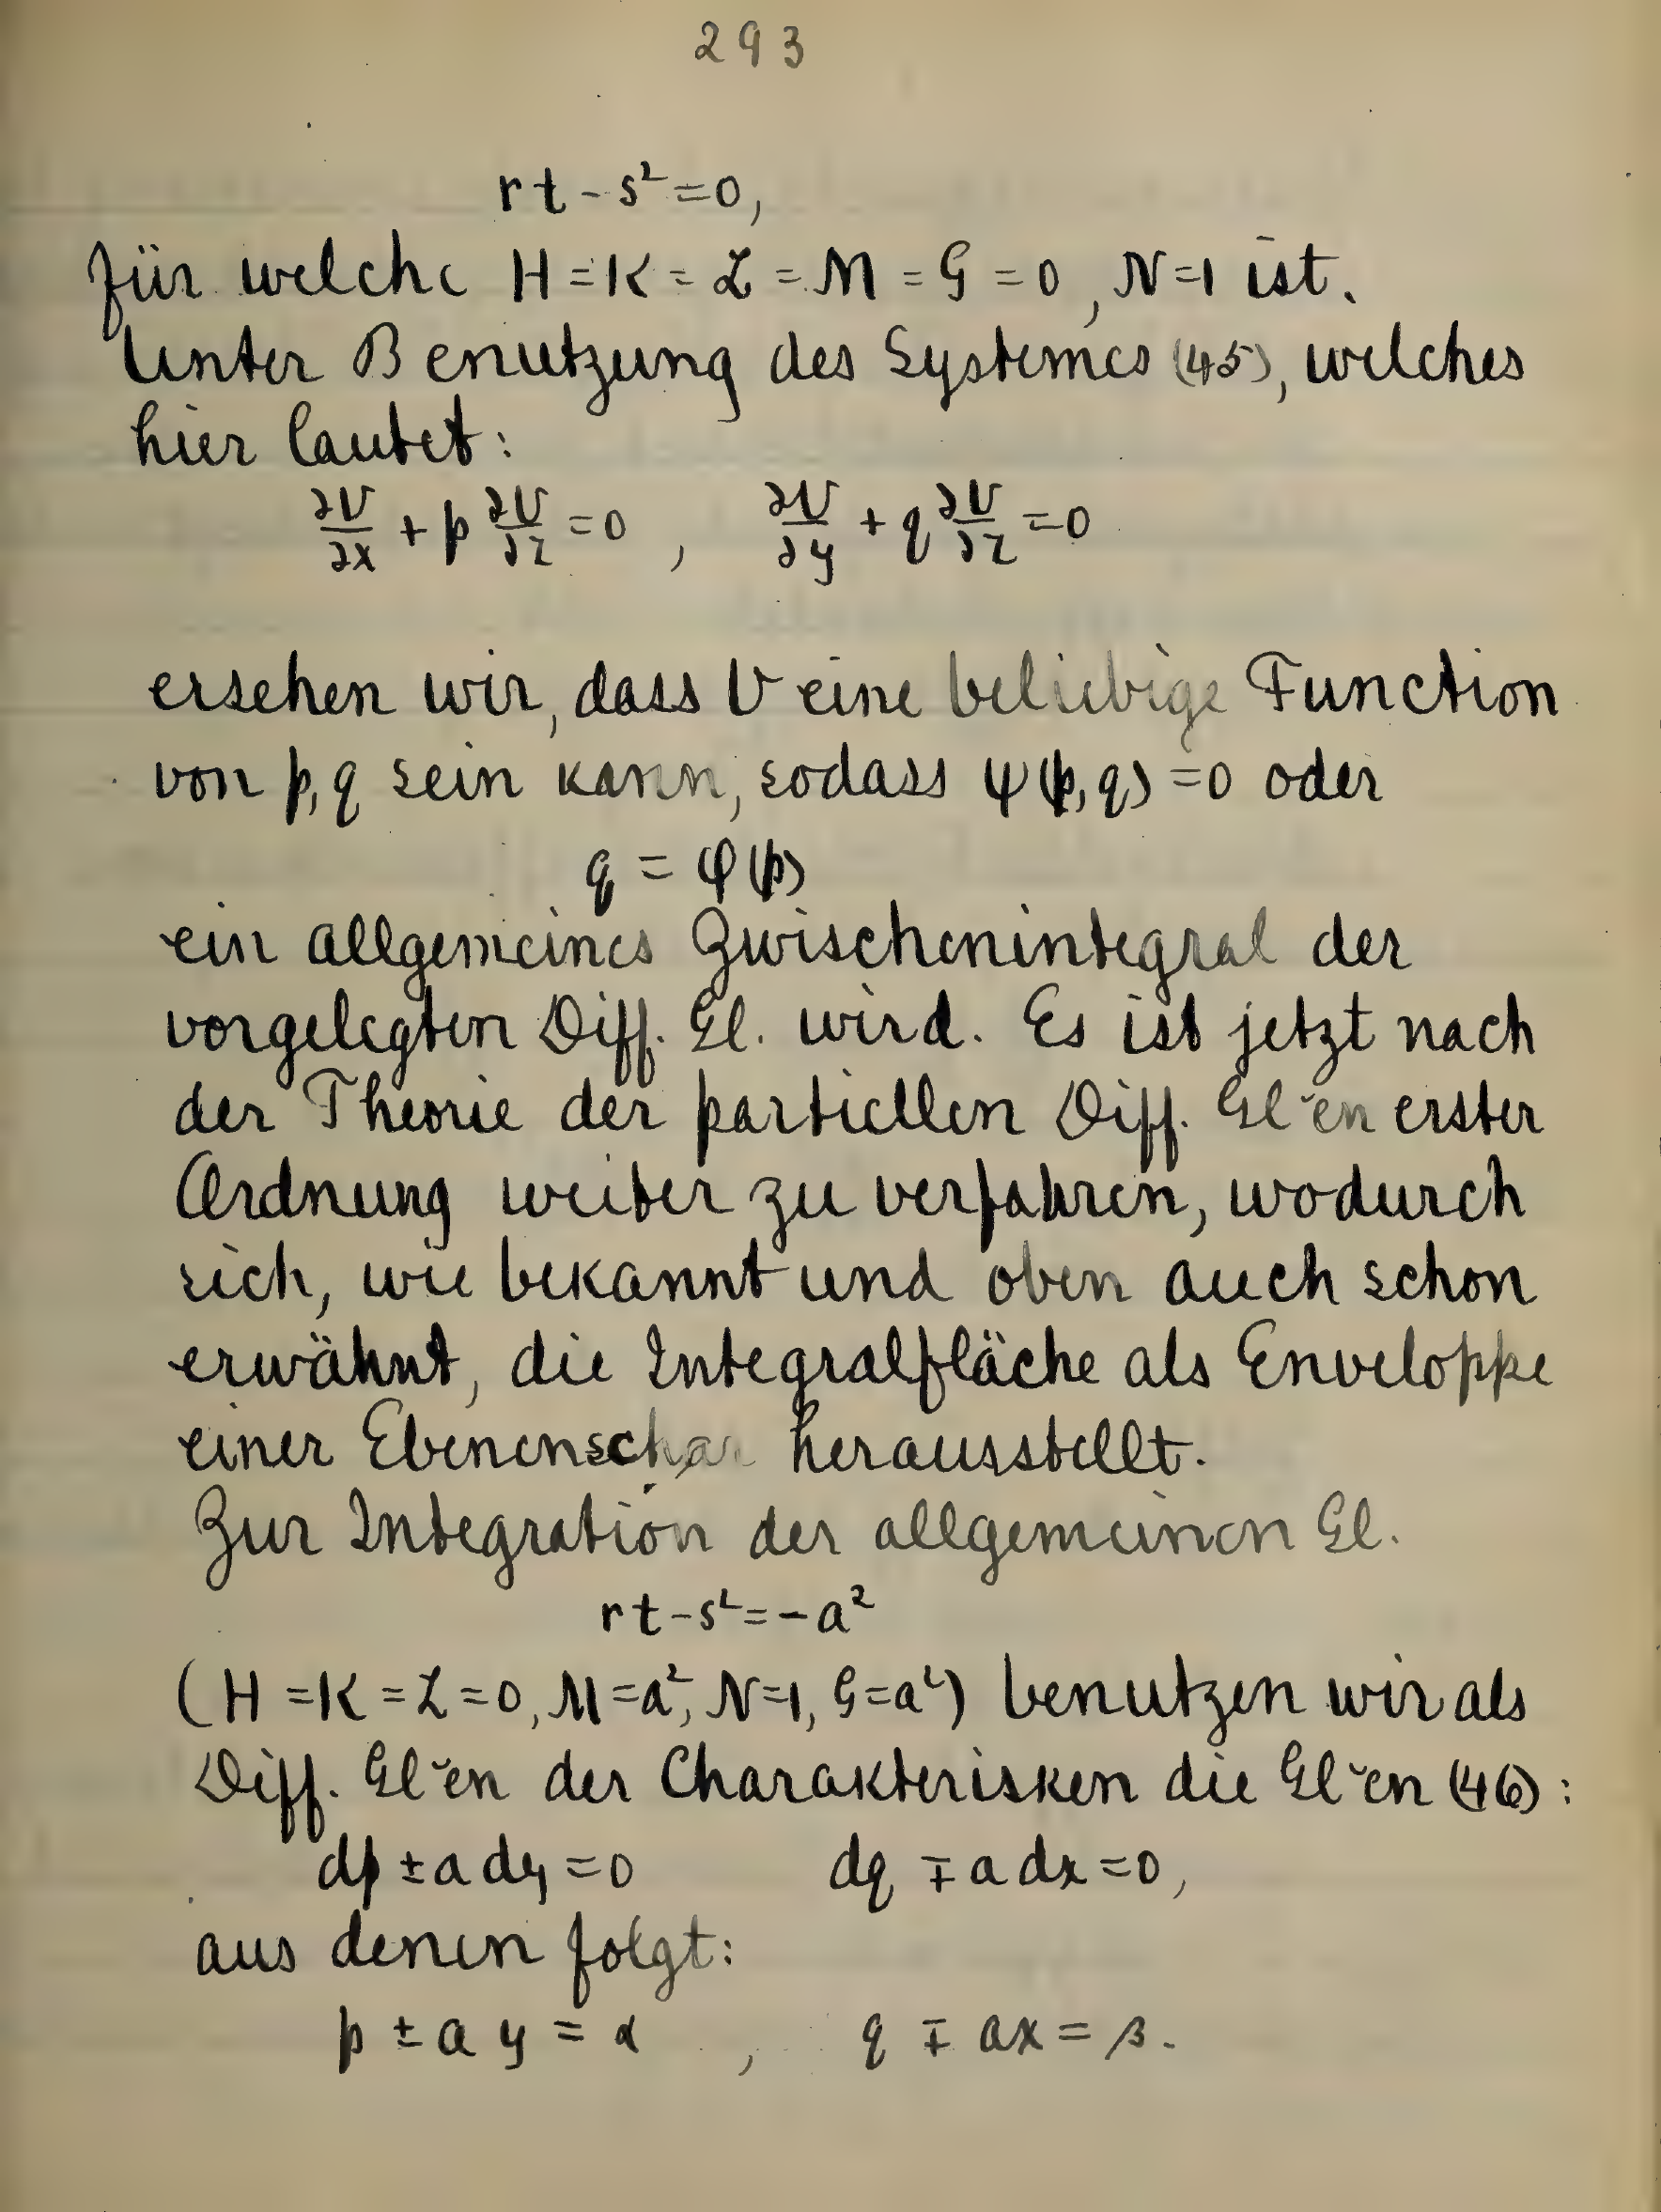 293
rt - s² = 0,
für welche H = K = L = M = G = 0, N = 1 ist.
Unter Benutzung des Systemes (45), welches
hier lautet:
∂V/∂x + p ∂V/∂z = 0 , ∂V/∂y + q ∂V/∂z = 0
ersehen wir, dass V eine beliebige Function
von p, q sein kann, sodass ψ(p, q) = 0 oder
q = φ(p)
ein allgemeines Zwischenintegral der
vorgelegten Diff. Gl. wird. Es ist jetzt nach
der Theorie der partiellen Diff. Gl˘en erster
Ordnung weiter zu verfahren, wodurch
sich, wie bekannt und oben auch schon
erwähnt, die Integralfläche als Enveloppe
einer Ebenenschar herausstellt.
Zur Integration der allgemeinen Gl.
rt - s² = - a²
(H = K = L = 0, M = a², N = 1, G = a²) benutzen wir als
Diff. Gl˘en der Charakterisken die Gl˘en (46):
dp ± a dy = 0 dq ∓ a dx = 0,
aus denen folgt:
p ± a y = α , q ∓ ax = β.